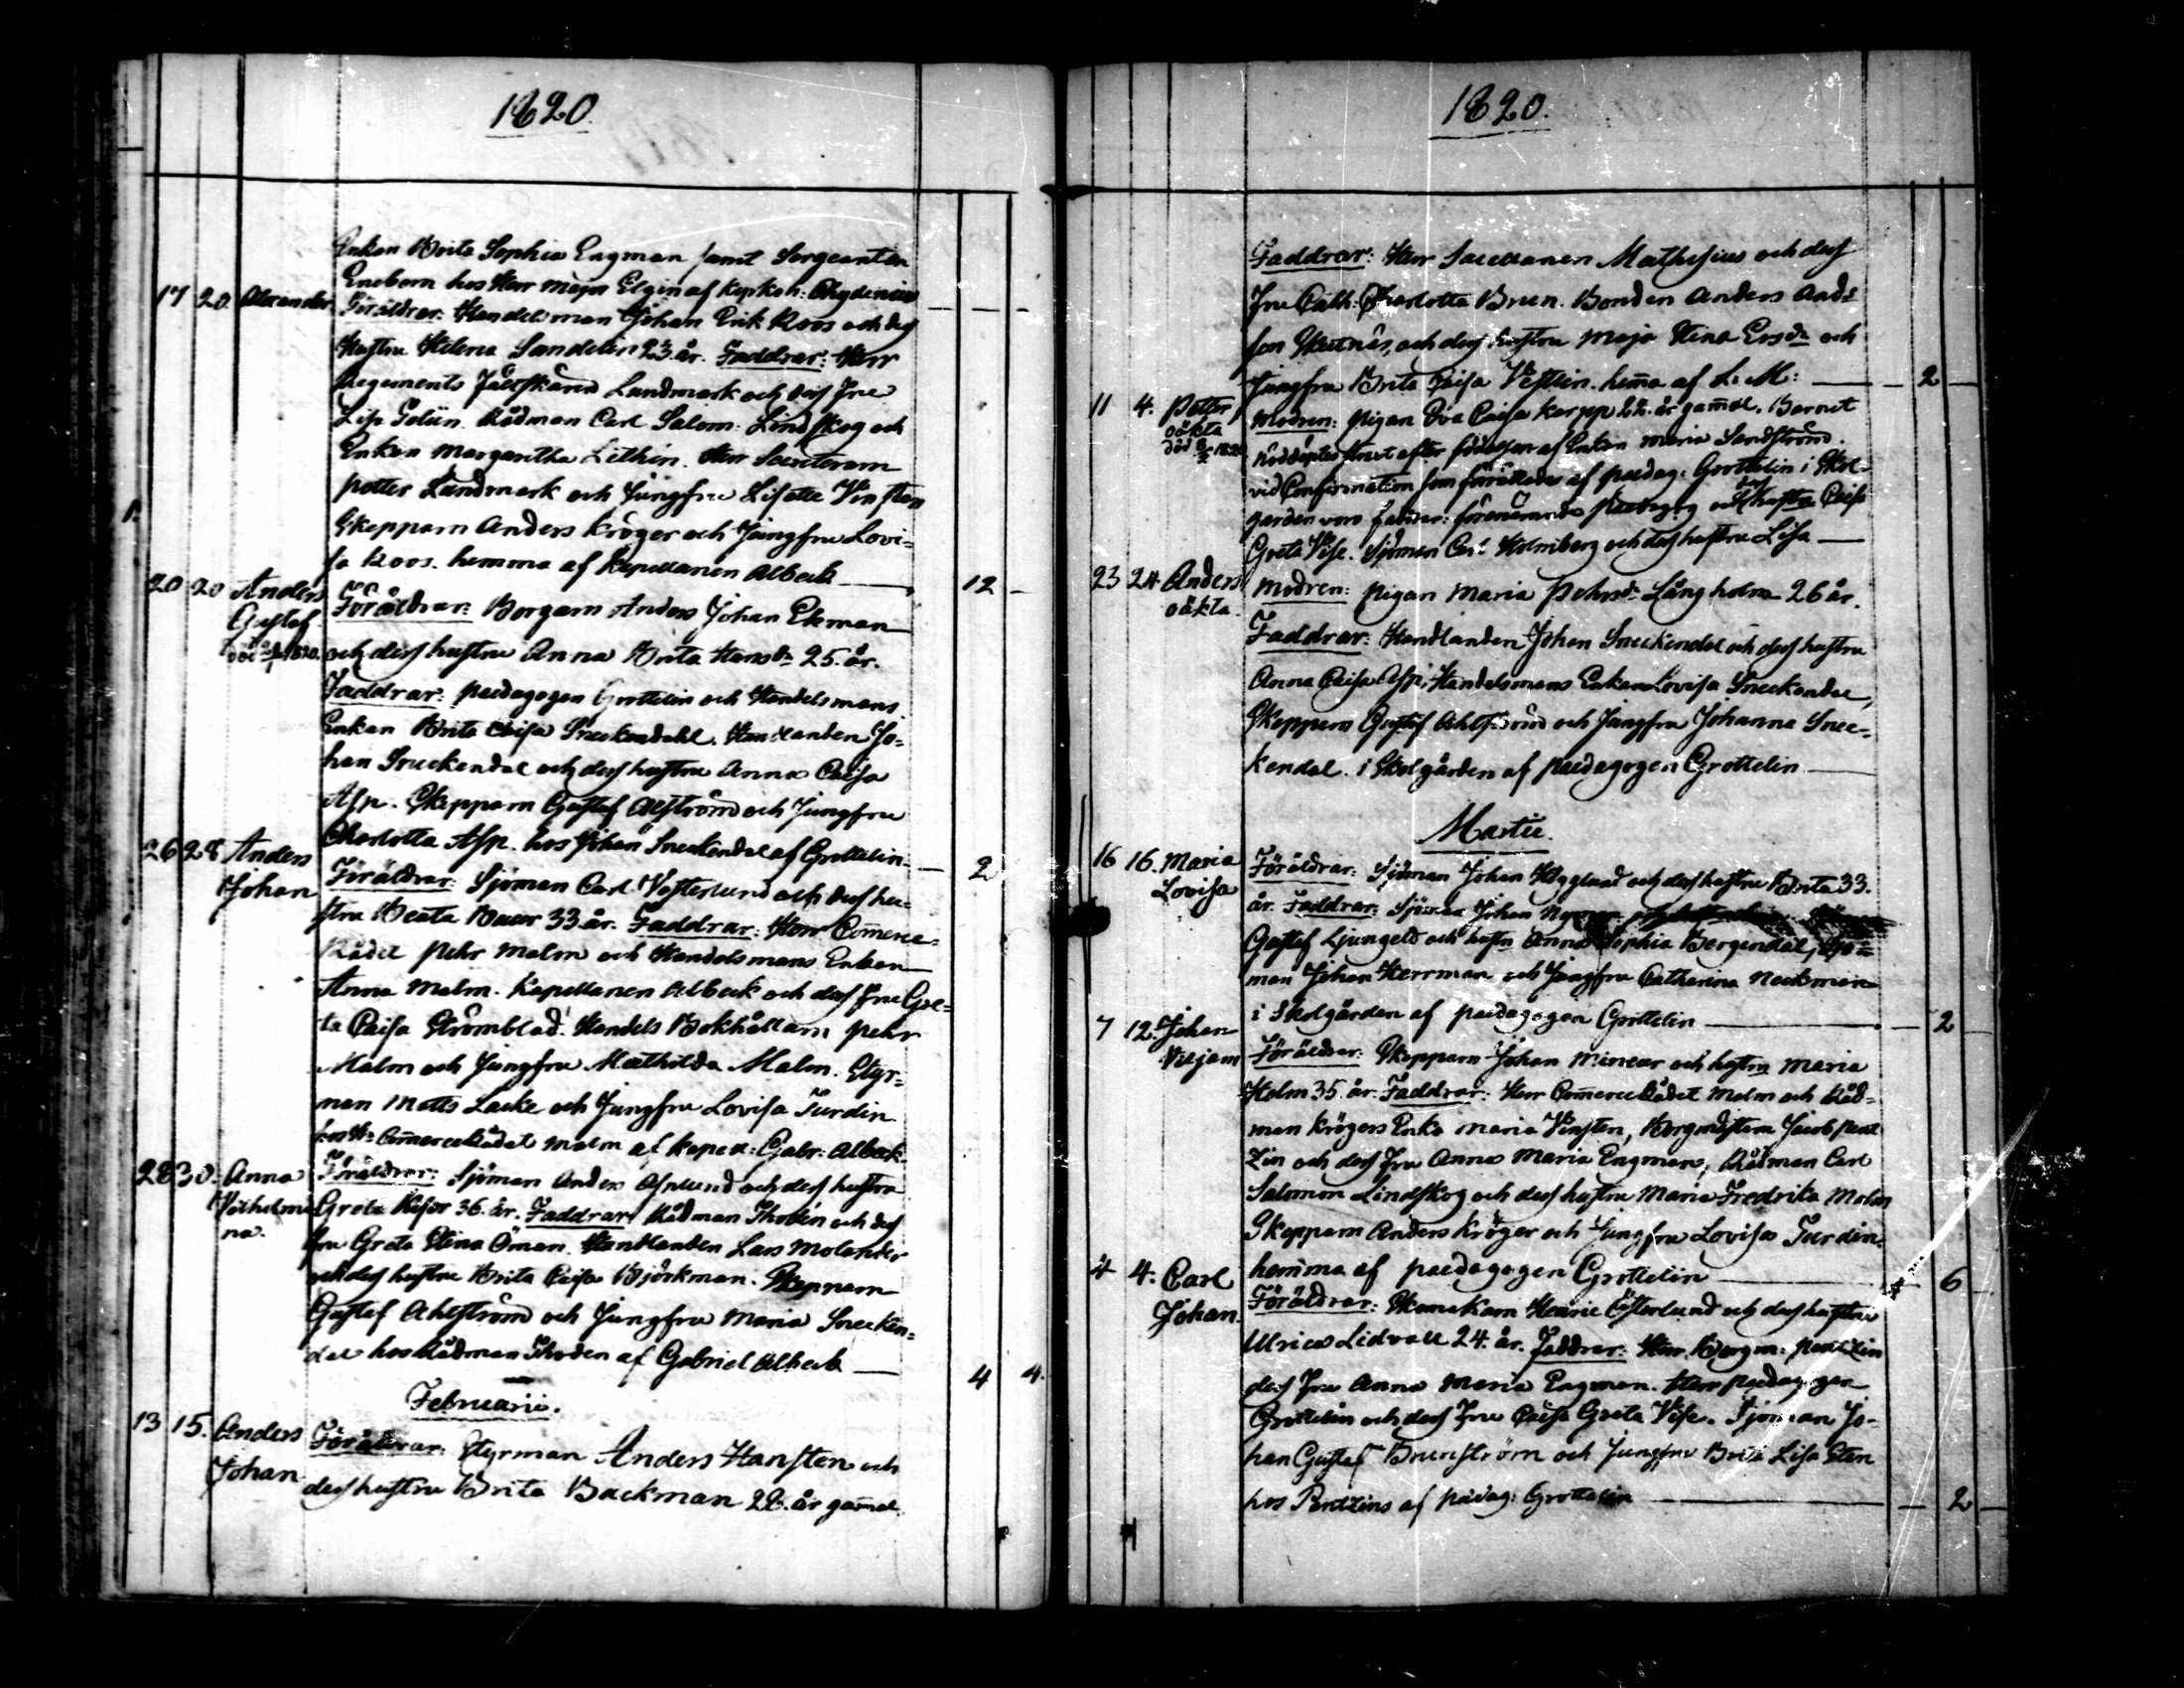 1820.
Enkan Brita Sophia Engman samt Sergeanten
Eneborn hos Herr Major Elgen af Kapkoh: Chydenius
17 20 Alexander. Föräldrar: Handelsman Johan Erik Roos och dess
Hustru Helena Sandelin 23 år. Faddrar: Herr
Regements Fältskären Landmark och dess Fru
Lisa Rådman Carl Salom: Lindskog och
Enkan Margaretha Lithén. Herr Secreteraren
Petter Landmark och Jungfru Lisette Vinsten
Skepparn Anders Kröger och Jungfru Lovi=
sa Roos. hemma af Kapellanen Albeck — 12
20 20 Anders Föräldrar: Borgarn Anders Johan Ekman
Gustaf
död 1820. och dess hustru Anna Brita Hansdr 25. år.
Faddrar: Pædagogen Grottelin och Handelsmans
Enkan Brita Caisa Sneckendahl. Handlanden Jo=
han Sneckendal och dess hustru Anna Caisa
Asp. Skepparn Gustaf Alström och Jungfru
Charlotta Asp. hos Johan Sneckendal af Grottelin — 2
26 28 Anders Föräldrar: Sjöman Carl Vesterlund och dess hu=
Johan
stru Beata Bauer 33 år. Faddrar: Herr Comerce-
Rådet Pehr Malm och Handelsmans Enkan
Anna Malm. Kapellanen Albeck och dess Fru Gre=
ta Caisa Strömblad. Handels Bokhållarn Pehr
Malm och Jungfru Mathilda Malm. Styr=
man Matts Lacke och Jungfru Lovisa Turdin
hos Hr Comerce Rådet Malm af Kapell: Gabr: Albeck.
28 30. Anna Föräldrar: Sjöman Anders Asplund och dess hustru
Vilhelmi Greta 36. år. Faddrar: Rådman Thodén och dess
na. fru Greta Stina Öman. Handlanden Lars Molander
och dess hustru Brita Caisa Björkman. Skepparn
Gustaf Ahlström och Jungfru Maria Snecken=
dal hos Rådman Thodén af Gabriel Albeck — 4 4.
Februarii.
13 15. Anders Föräldrar: Styrman Anders Hansten och
Johan dess hustru Brita Backman 22. år gam̄al.
1820.
Faddrar: Herr Sacellanen Mathesius och dess
Fru Cath: Charlotta Brun. Bonden Anders Ands
son Skutnäs, och dess hustru Maja Stina Ersdr och
Jungfru Brita Caisa Vestlin. hem̄a af L: M: — 2
11 4. Petter Modren: Pigan Eva Caisa Karpp 22. år gam̄al. Barnet
oäkta
död 1820 Nöddöptes strax efter födelsen af Enkan Maria Sandström.
vid Confirmation som förrättades af pædag: Grottelin i Skol-
gården voro faddrar: förenämnde Pædagog och dess hustru Caisa
Greta Vise. Sjöman Carl Holmberg och dess hustru Lisa —
23 24. Anders Modren: Pigan Maria Pehrsdr Långholm 26 år.
oäkta.
Faddrar: Handlanden Johan Sneckendal och dess hustru
Anna Caisa Asp, Handelsmans Enkan Lovisa Sneckendal,
Skepparn Gustaf Ahlström och Jungfru Johanna Snec=
kendal. i Skolgården af pædagogen Grottelin —
Martii.
16 16. Maria Föräldrar: Sjöman Johan Hägglund och dess hustru Brita 33.
Lovisa
år. Faddrar: Sjöman Johan
Gustaf Ljungeld och hustru Anna Sophia Bergendal, Sjö=
man Johan Herrman och Jungfru Catharina Neckman
i Skolgården af pædagogen Grottelin — 2
7 12. Johan Föräldrar: Skepparn Johan Minear och hustru Maria
Viljam
Holm 35. år. Faddrar: Herr Comerce Rådet Malm och Råd=
man Krögers Enka Maria Vinsten, Borgmästarn Jacob Pent
zin och dess Fru Anna Maria Engman, Rådman Carl
Salomon Lindskog och dess hustru Maria Fredrika Malm
Skepparn Anders Kröger och Jungfru Lovisa Turdin.
hemma af pædagogen Grottelin — 6
4 4. Carl Föräldrar: Österlund och dess hustru
Johan.
Ulrica Lidvall 24. år. Faddrar: Herr Borgm: Pentzin
dess Fru Anna Maria Engman. Herr Pædagogen
Grottelin och dess Fru Caisa Greta Vise. Sjöman Jo-
han Gustaf Brunström och Jungfru Brita Lisa Sten
hos Pentzins af pædag: Grottelin — 2